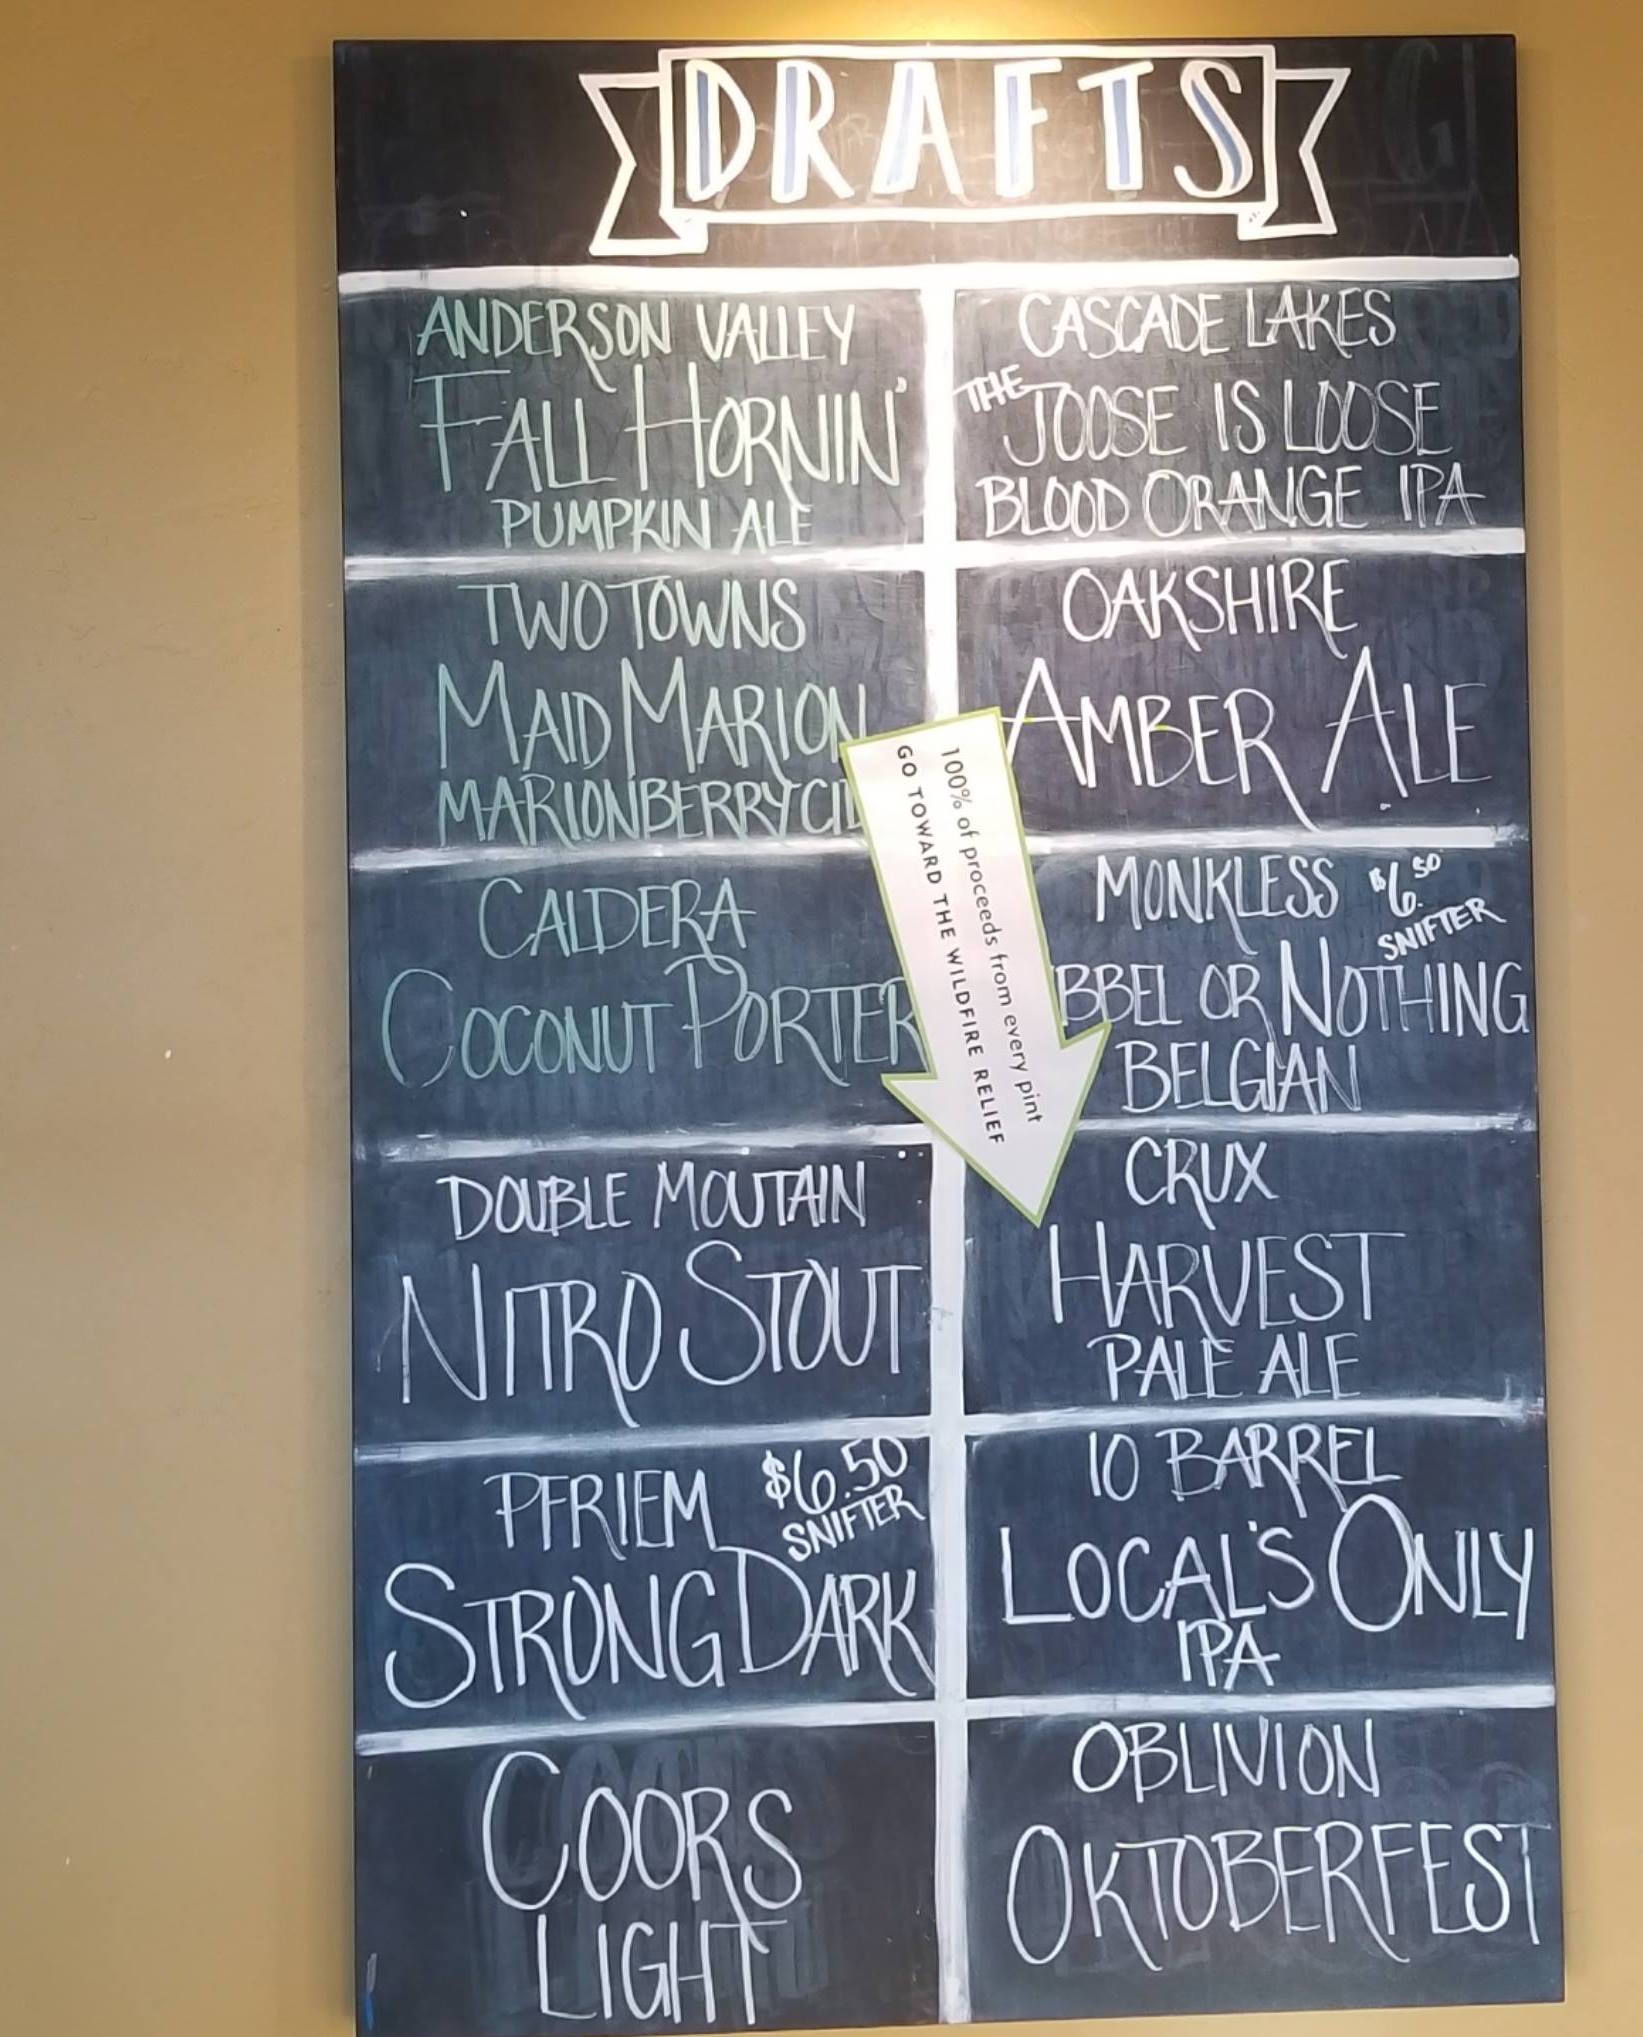 DRAFTS
ANDERSON VALLEY
FALL HORNIN'
PUMPKIN ALE
CASCADE LAKES
THE JOOSE IS LOOSE
BLOOD ORANGE IPA
TWO TOWNS
MAID MARION
MARIONBERRY
OAKSHIRE
AMBER ALE
100% of proceeds from every pint
GO TOWARD THE WILDFIRE RELIEF
CALDERA
COCONUT PORTER
MONKLESS $6.50
SNIFTER
OR NOTHING
BELGIAN
DOUBLE MOUTAIN
NITRO STOUT
CRUX
HARVEST
PALE ALE
PFRIEM $6.50
SNIFTER
STRONG DARK
10 BARREL
LOCAL'S ONLY
IPA
COORS
LIGHT
OBLIVION
OKTOBERFEST